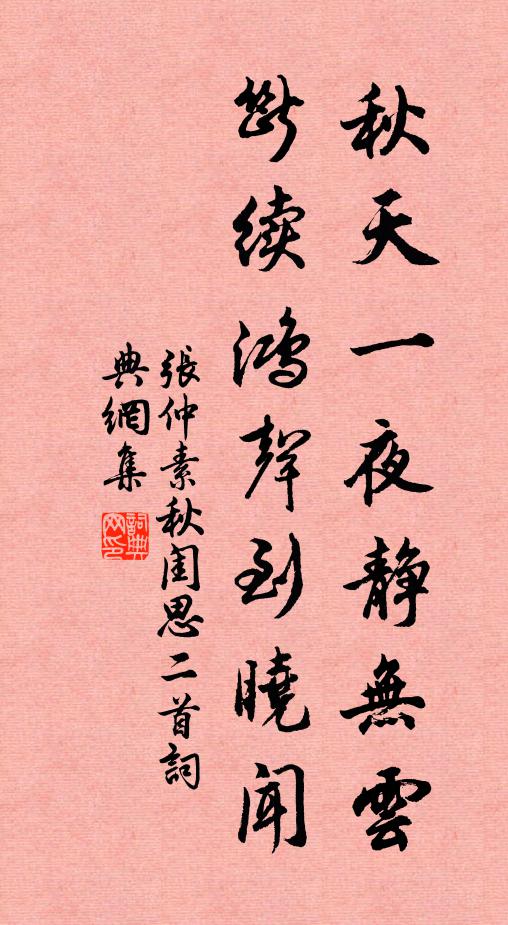 秋天一夜静無雲
斷续鴻聲到曉闻
張仲素秋閨思二首詞
典網集
詞典網印